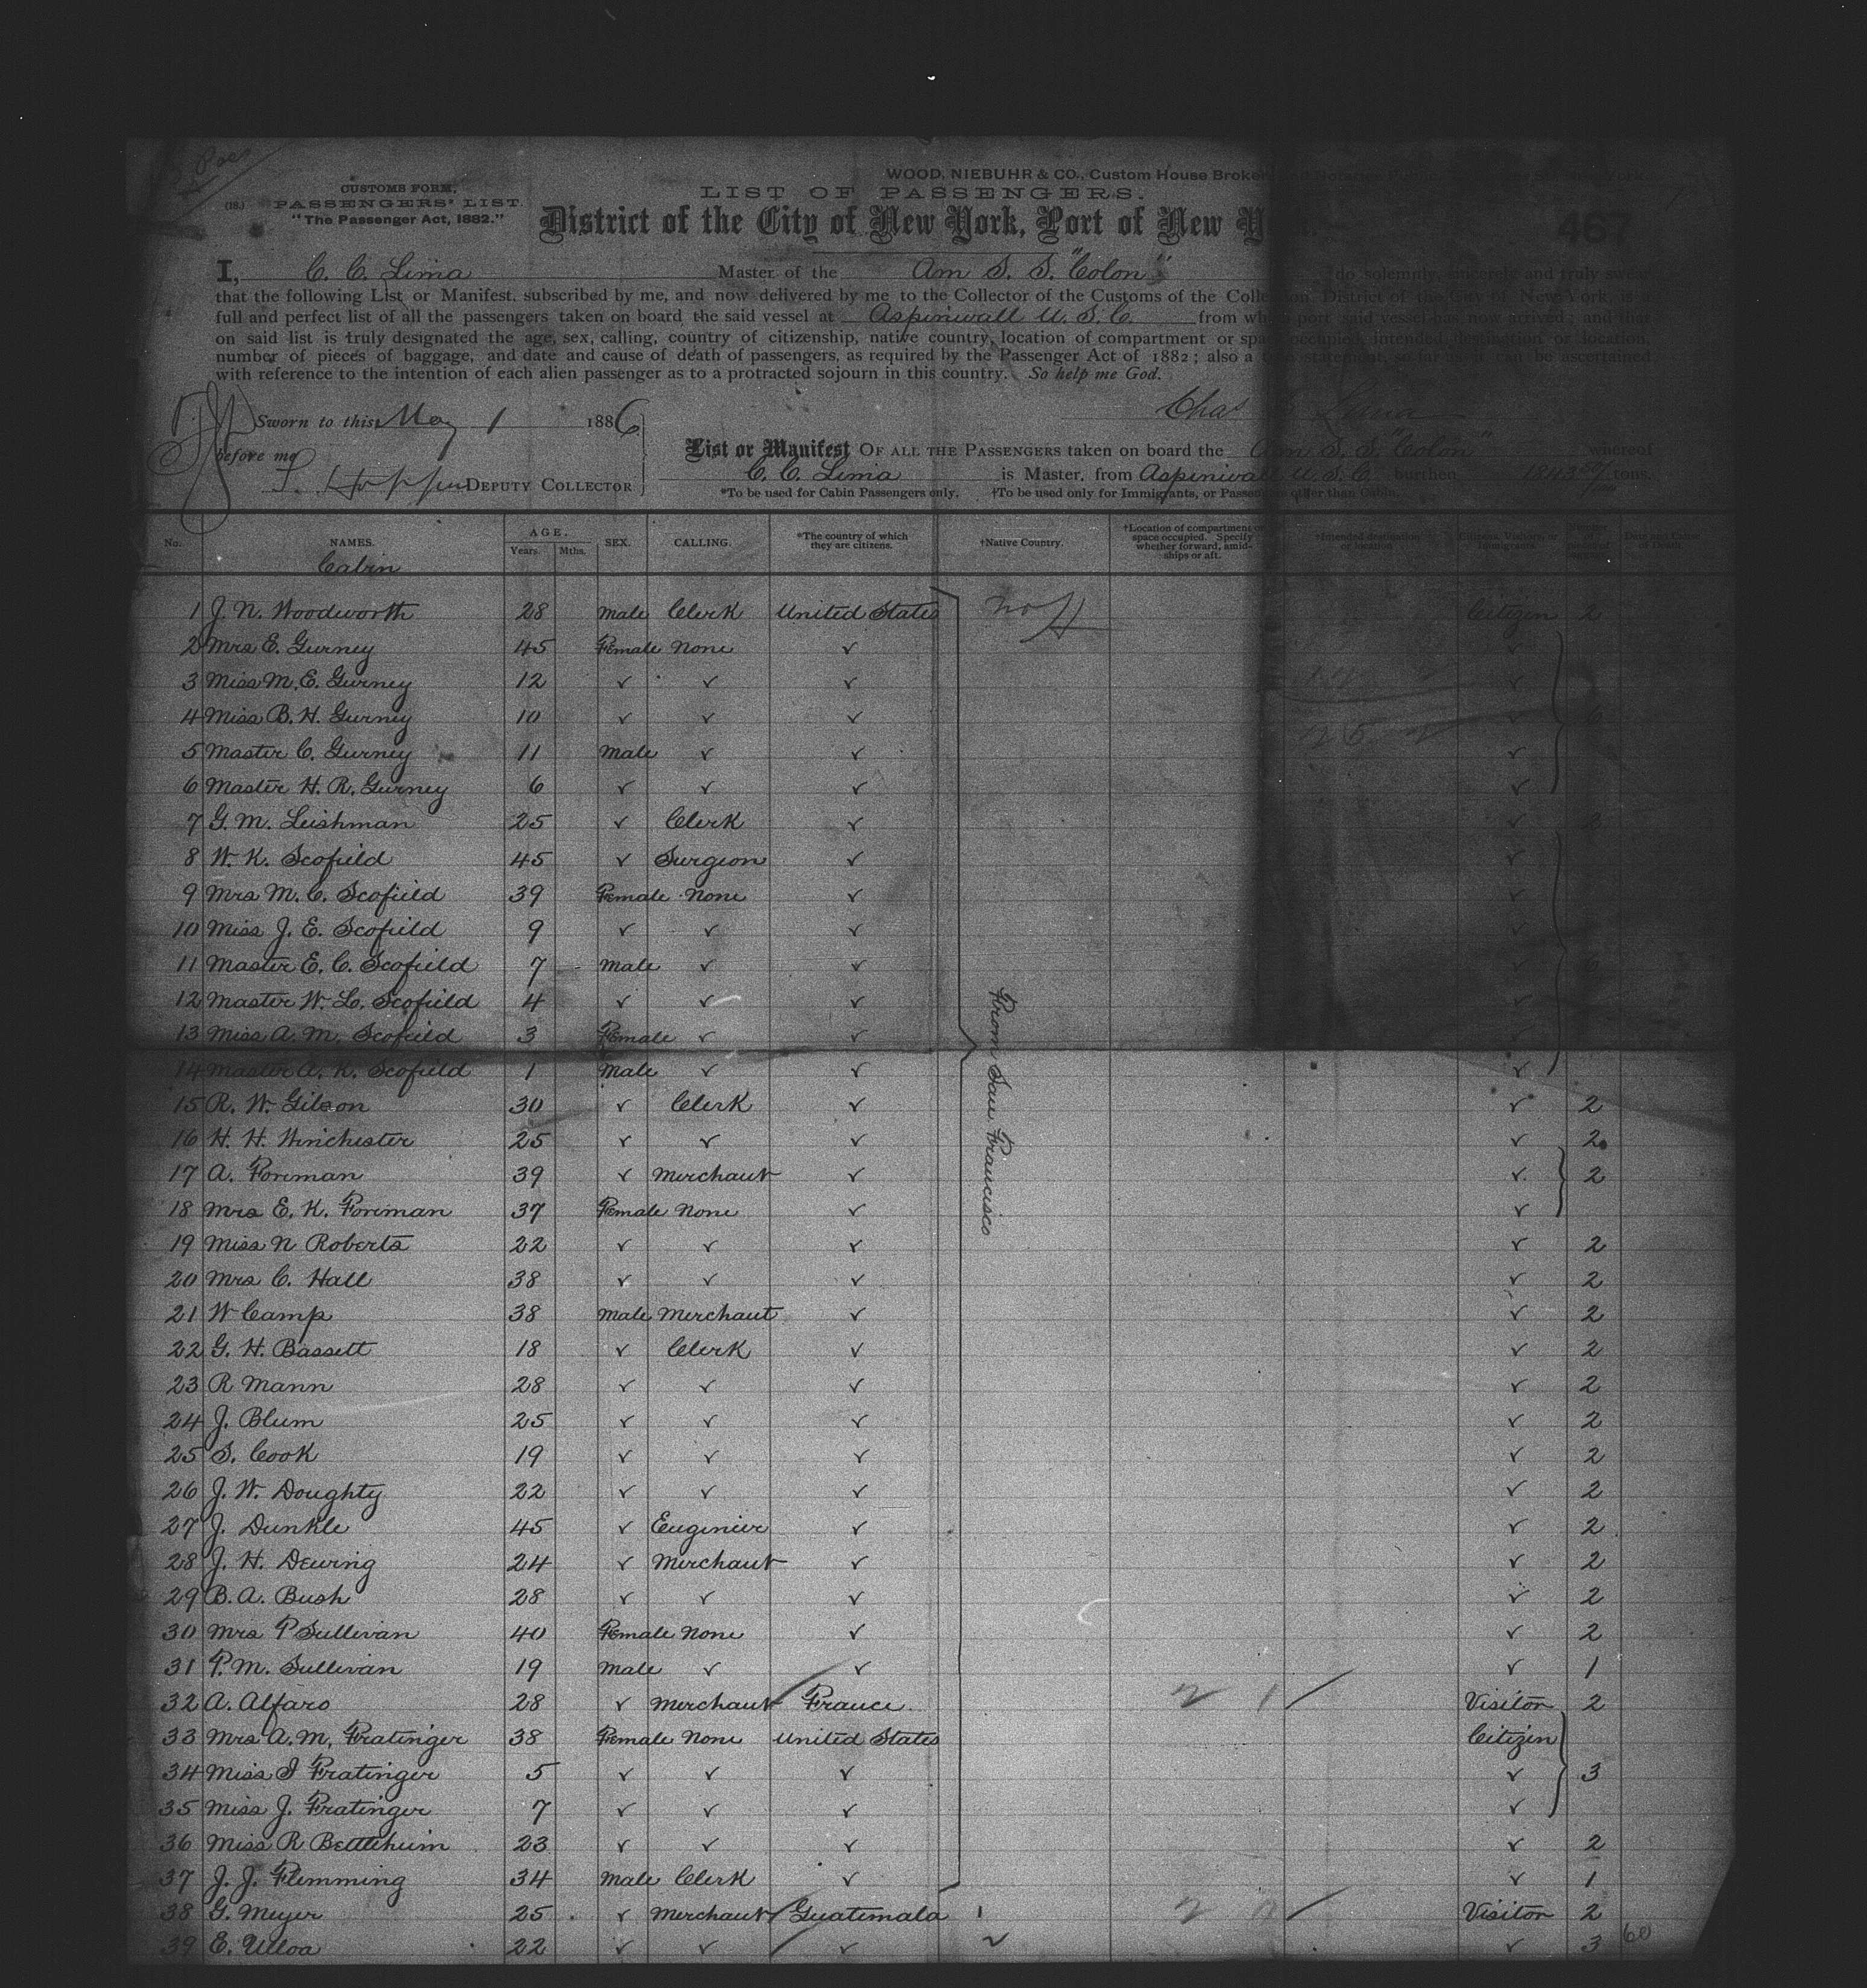 WOOD, NIEBUHR & CO., Custom House Brokers
CUSTOMS FORM.
LIST OF PASSENGERS.
(18.) PASSENGERS' LIST.
"The Passenger Act, 1882."
District of the City of New York, Port of New Y
467
I, C. C. Lima Master of the Am S. S. "Colon" do solemnly, sincerely and truly swear
that the following List or Manifest, subscribed by me, and now delivered by me to the Collector of the Customs of the Collection District of the City of New York, is a
full and perfect list of all the passengers taken on board the said vessel at Aspinwall U. S. C. from which port said vessel has now arrived; and that
on said list is truly designated the age, sex, calling, country of citizenship, native country, location of compartment or space occupied, intended destination or location,
number of pieces of baggage, and date and cause of death of passengers, as required by the Passenger Act of 1882; also a statement, so far as it can be ascertained
with reference to the intention of each alien passenger as to a protracted sojourn in this country. So help me God.
Chas Lima
Sworn to this May 1 1886
before me
List or Manifest OF ALL THE PASSENGERS taken on board the Am S. S. "Colon" whereof
C. C. Lima is Master, from Aspinwall U. S. C. burthen tons.
DEPUTY COLLECTOR
*To be used for Cabin Passengers only. †To be used only for Immigrants, or Passengers other than Cabin.
No. NAMES. AGE. Years. Mths. SEX. CALLING. *The country of which they are citizens. †Native Country. †Location of compartment or space occupied. Specify whether forward, amidships or aft. †Intended destination or location
Cabin
1 J. N. Woodworth 28 Male Clerk United States Citizen 2
2 Mrs E. Gurney 45 Female None ✓ ✓
3 Miss M. E. Gurney 12 ✓ ✓ ✓ ✓
4 Miss B. H. Gurney 10 ✓ ✓ ✓ ✓
5 Master C. Gurney 11 Male ✓ ✓ ✓
6 Master H. R. Gurney 6 ✓ ✓ ✓ ✓
7 G. M. Leishman 25 ✓ Clerk ✓ ✓
8 W. K. Scofield 45 ✓ Surgeon ✓ ✓
9 Mrs M. C. Scofield 39 Female None ✓ ✓
10 Miss J. E. Scofield 9 ✓ ✓ ✓ ✓
11 Master E. C. Scofield 7 Male ✓ ✓ ✓
12 Master W. L. Scofield 4 ✓ ✓ ✓ ✓
13 Miss A. M. Scofield 3 Female ✓ ✓
14 Master A. K. Scofield 1 Male ✓ ✓ ✓
15 R. W. Gilson 30 ✓ Clerk ✓ ✓ 2
16 H. H. Winchester 25 ✓ ✓ ✓ ✓ 2
17 A. Foreman 39 ✓ Merchant ✓ ✓ 2
18 Mrs E. K. Foreman 37 Female None ✓ ✓
19 Miss N Roberts 22 ✓ ✓ ✓ ✓ 2
20 Mrs C. Hall 38 ✓ ✓ ✓ ✓ 2
21 W Camp 38 Male Merchant ✓ ✓ 2
22 G. H. Bassett 18 ✓ Clerk ✓ ✓ 2
23 R Mann 28 ✓ ✓ ✓ ✓ 2
24 J. Blum 25 ✓ ✓ ✓ ✓ 2
25 S. Cook 19 ✓ ✓ ✓ ✓ 2
26 J. W. Doughty 22 ✓ ✓ ✓ ✓ 2
27 J. Dunkle 45 ✓ Engineer ✓ ✓ 2
28 J. H. Dewing 24 ✓ Merchant ✓ ✓ 2
29 B. A. Bush 28 ✓ ✓ ✓ ✓ 2
30 Mrs P Sullivan 40 Female None ✓ ✓ 2
31 P. M. Sullivan 19 Male ✓ ✓ ✓ 1
32 A. Alfaro 28 ✓ Merchant France Visitor 2
33 Mrs A. M. Fratinger 38 Female None United States Citizen
34 Miss I Fratinger 5 ✓ ✓ ✓ ✓ 3
35 Miss J. Fratinger 7 ✓ ✓ ✓ ✓
36 Miss R Bettelheim 23 ✓ ✓ ✓ ✓ 2
37 J. J. Flemming 34 Male Clerk ✓ ✓ 1
38 G. Meyer 25 ✓ Merchant Guatemala Visitor 2
39 E. Ulloa 22 ✓ ✓ ✓ ✓ 3
From San Francisco
60